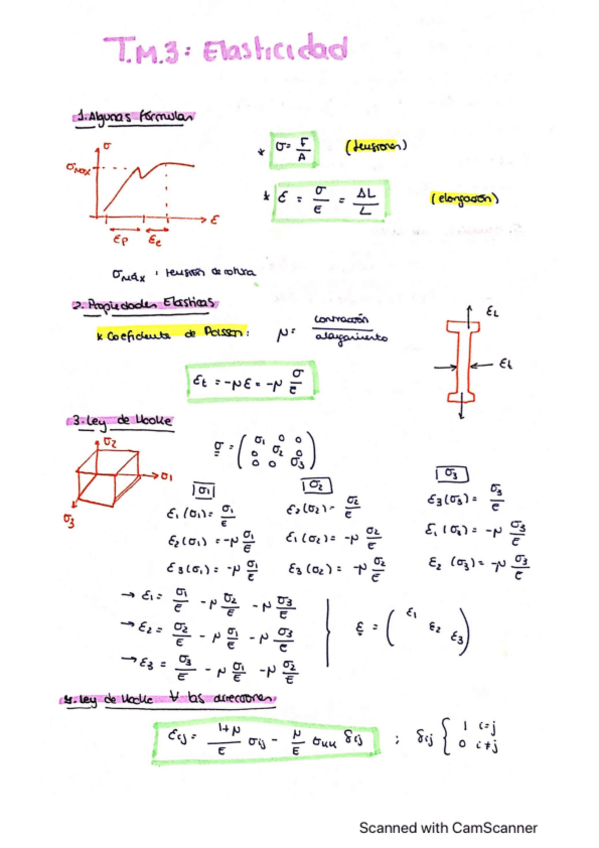 T.M.3: Elasticidad
1. Algunas fórmulas
σ
σmáx
ε
εp εe
* σ = F/A (tensiones)
* ε = σ/E = ΔL/L (elongación)
σmáx : tensión de rotura
2. Propiedades Elásticas
* Coeficiente de Poisson: μ = contracción/alargamiento
εt = -με = -μ σ/E
εL
εt
3. Ley de Hooke
σ2
σ1
σ3
σ = (σ1 0 0
0 σ2 0
0 0 σ3)
σ1 σ2 σ3
ε1(σ1) = σ1/E ε2(σ2) = σ2/E ε3(σ3) = σ3/E
ε2(σ1) = -μ σ1/E ε1(σ2) = -μ σ2/E ε1(σ3) = -μ σ3/E
ε3(σ1) = -μ σ1/E ε3(σ2) = -μ σ2/E ε2(σ3) = -μ σ3/E
→ ε1 = σ1/E - μ σ2/E - μ σ3/E
→ ε2 = σ2/E - μ σ1/E - μ σ3/E
→ ε3 = σ3/E - μ σ1/E - μ σ2/E
ε = (ε1 ε2 ε3)
4. Ley de Hooke ∀ las direcciones
εij = 1+μ/E σij - μ/E σkk δij ; δij { 1 i=j
0 i≠j
Scanned with CamScanner